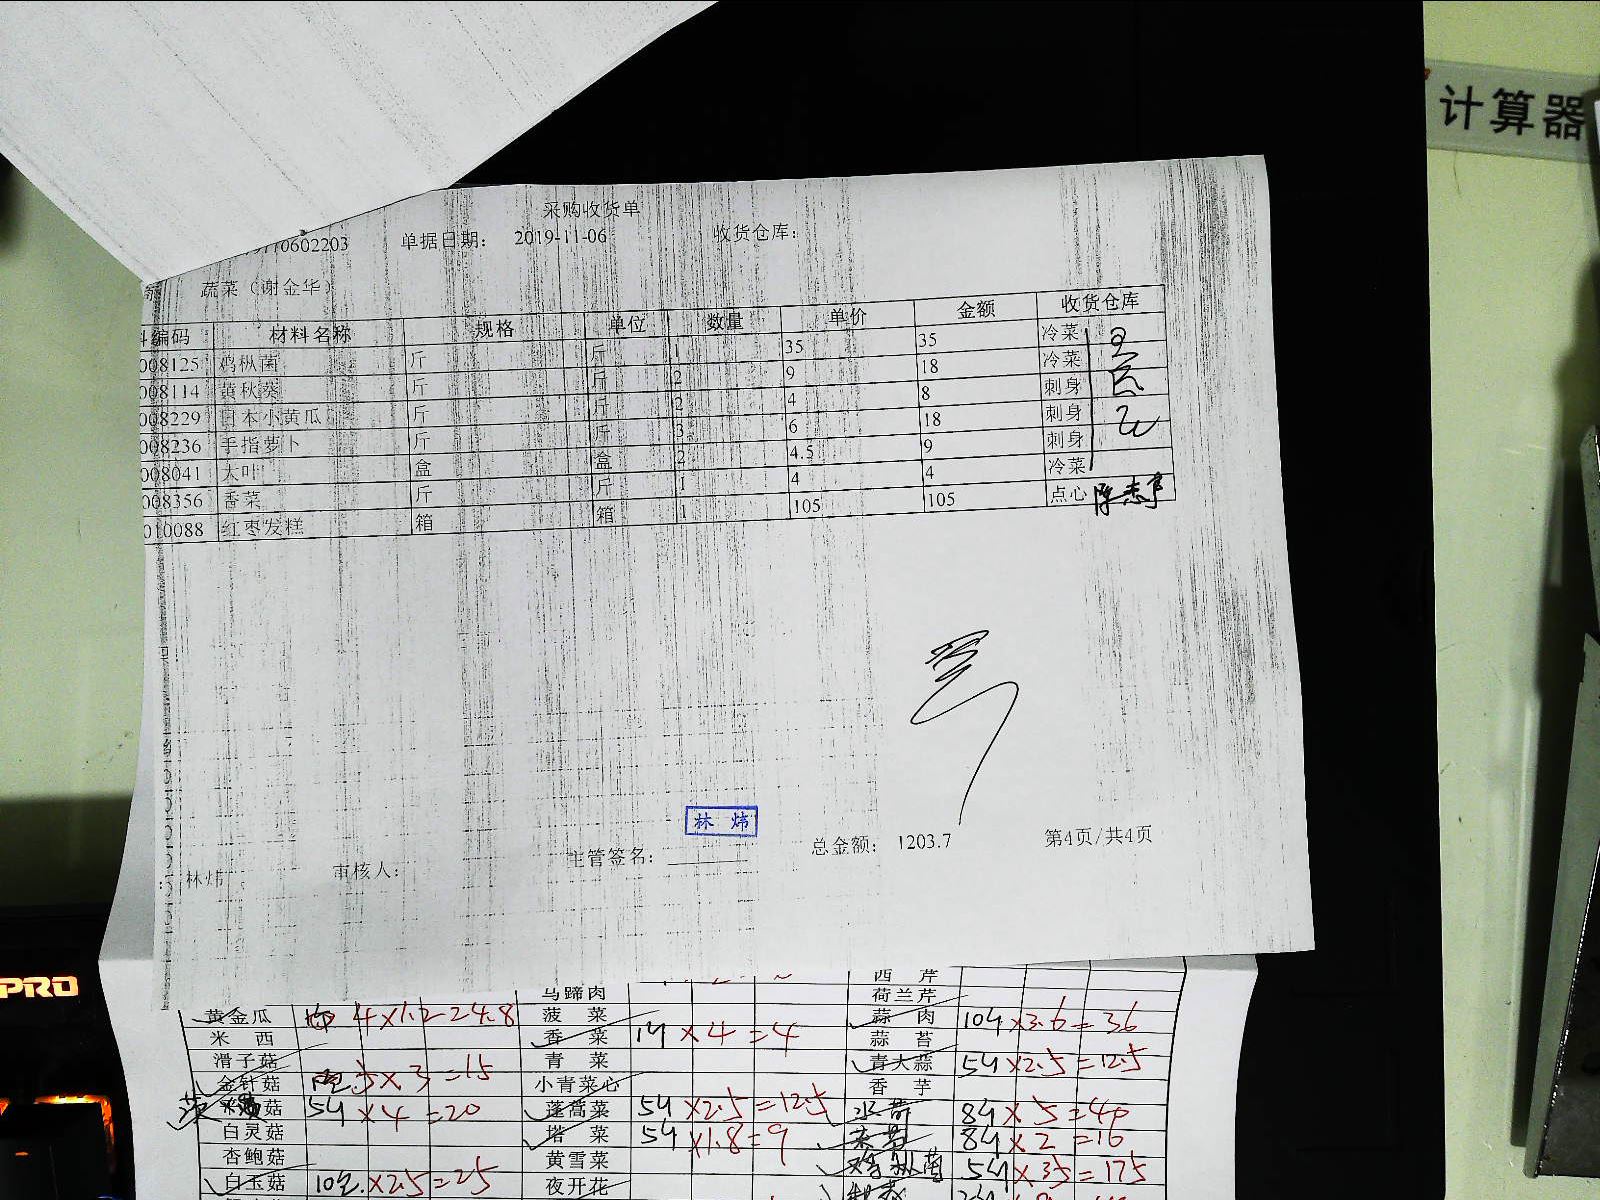 计算器
采购收货单
10602203 单据日期: 2019-11-06 收货仓库:
蔬菜（谢金华）
编码 材料名称 规格 单位 数量 单价 金额 收货仓库
008125 鸡枞菌 斤 斤 1 35 35 冷菜
008114 黄秋葵 斤 斤 2 9 18 冷菜
008229 日本小黄瓜 斤 斤 2 4 8 刺身
008236 手指萝卜 斤 斤 3 6 18 刺身
008041 大叶 盒 盒 2 4.5 9 刺身
008356 香菜 斤 斤 1 4 4 冷菜
010088 红枣发糕 箱 箱 1 105 105 点心
林 炜
: 林炜 审核人: 主管签名: 总金额: 1203.7 第4页/共4页
PRO
西 芹
马蹄肉 荷兰芹
黄金瓜 4×1.2=4.8 菠 菜 蒜 肉 10斤×3.6=36
米 西 香 菜 1斤×4=4 蒜 苔
滑子菇 青 菜 青大蒜 5斤×2.5=12.5
金针菇 5×3=15 小青菜心 香 芋
菇 5斤×4=20 蓬蒿菜 5斤×2.5=12.5 8斤×5=40
白灵菇 塔 菜 5斤×1.8=9 8斤×2=16
杏鲍菇 黄雪菜 鸡枞菌 5斤×35=175
白玉菇 10包×2.5=25 夜开花